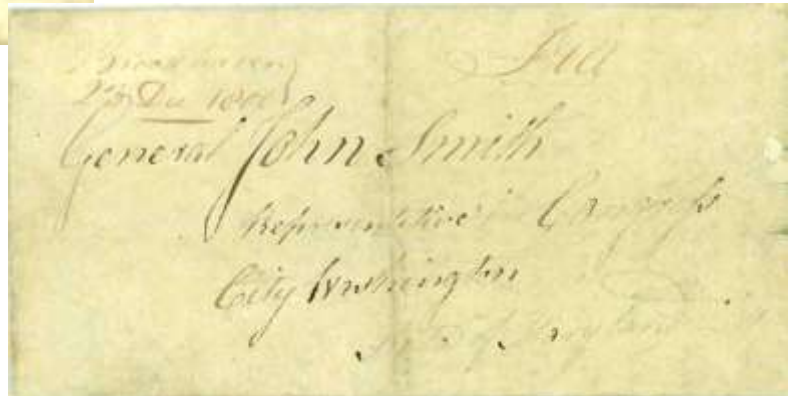 Brookhaven
Free
General John Smith
Representative in Congress
City Washington
State of Maryland